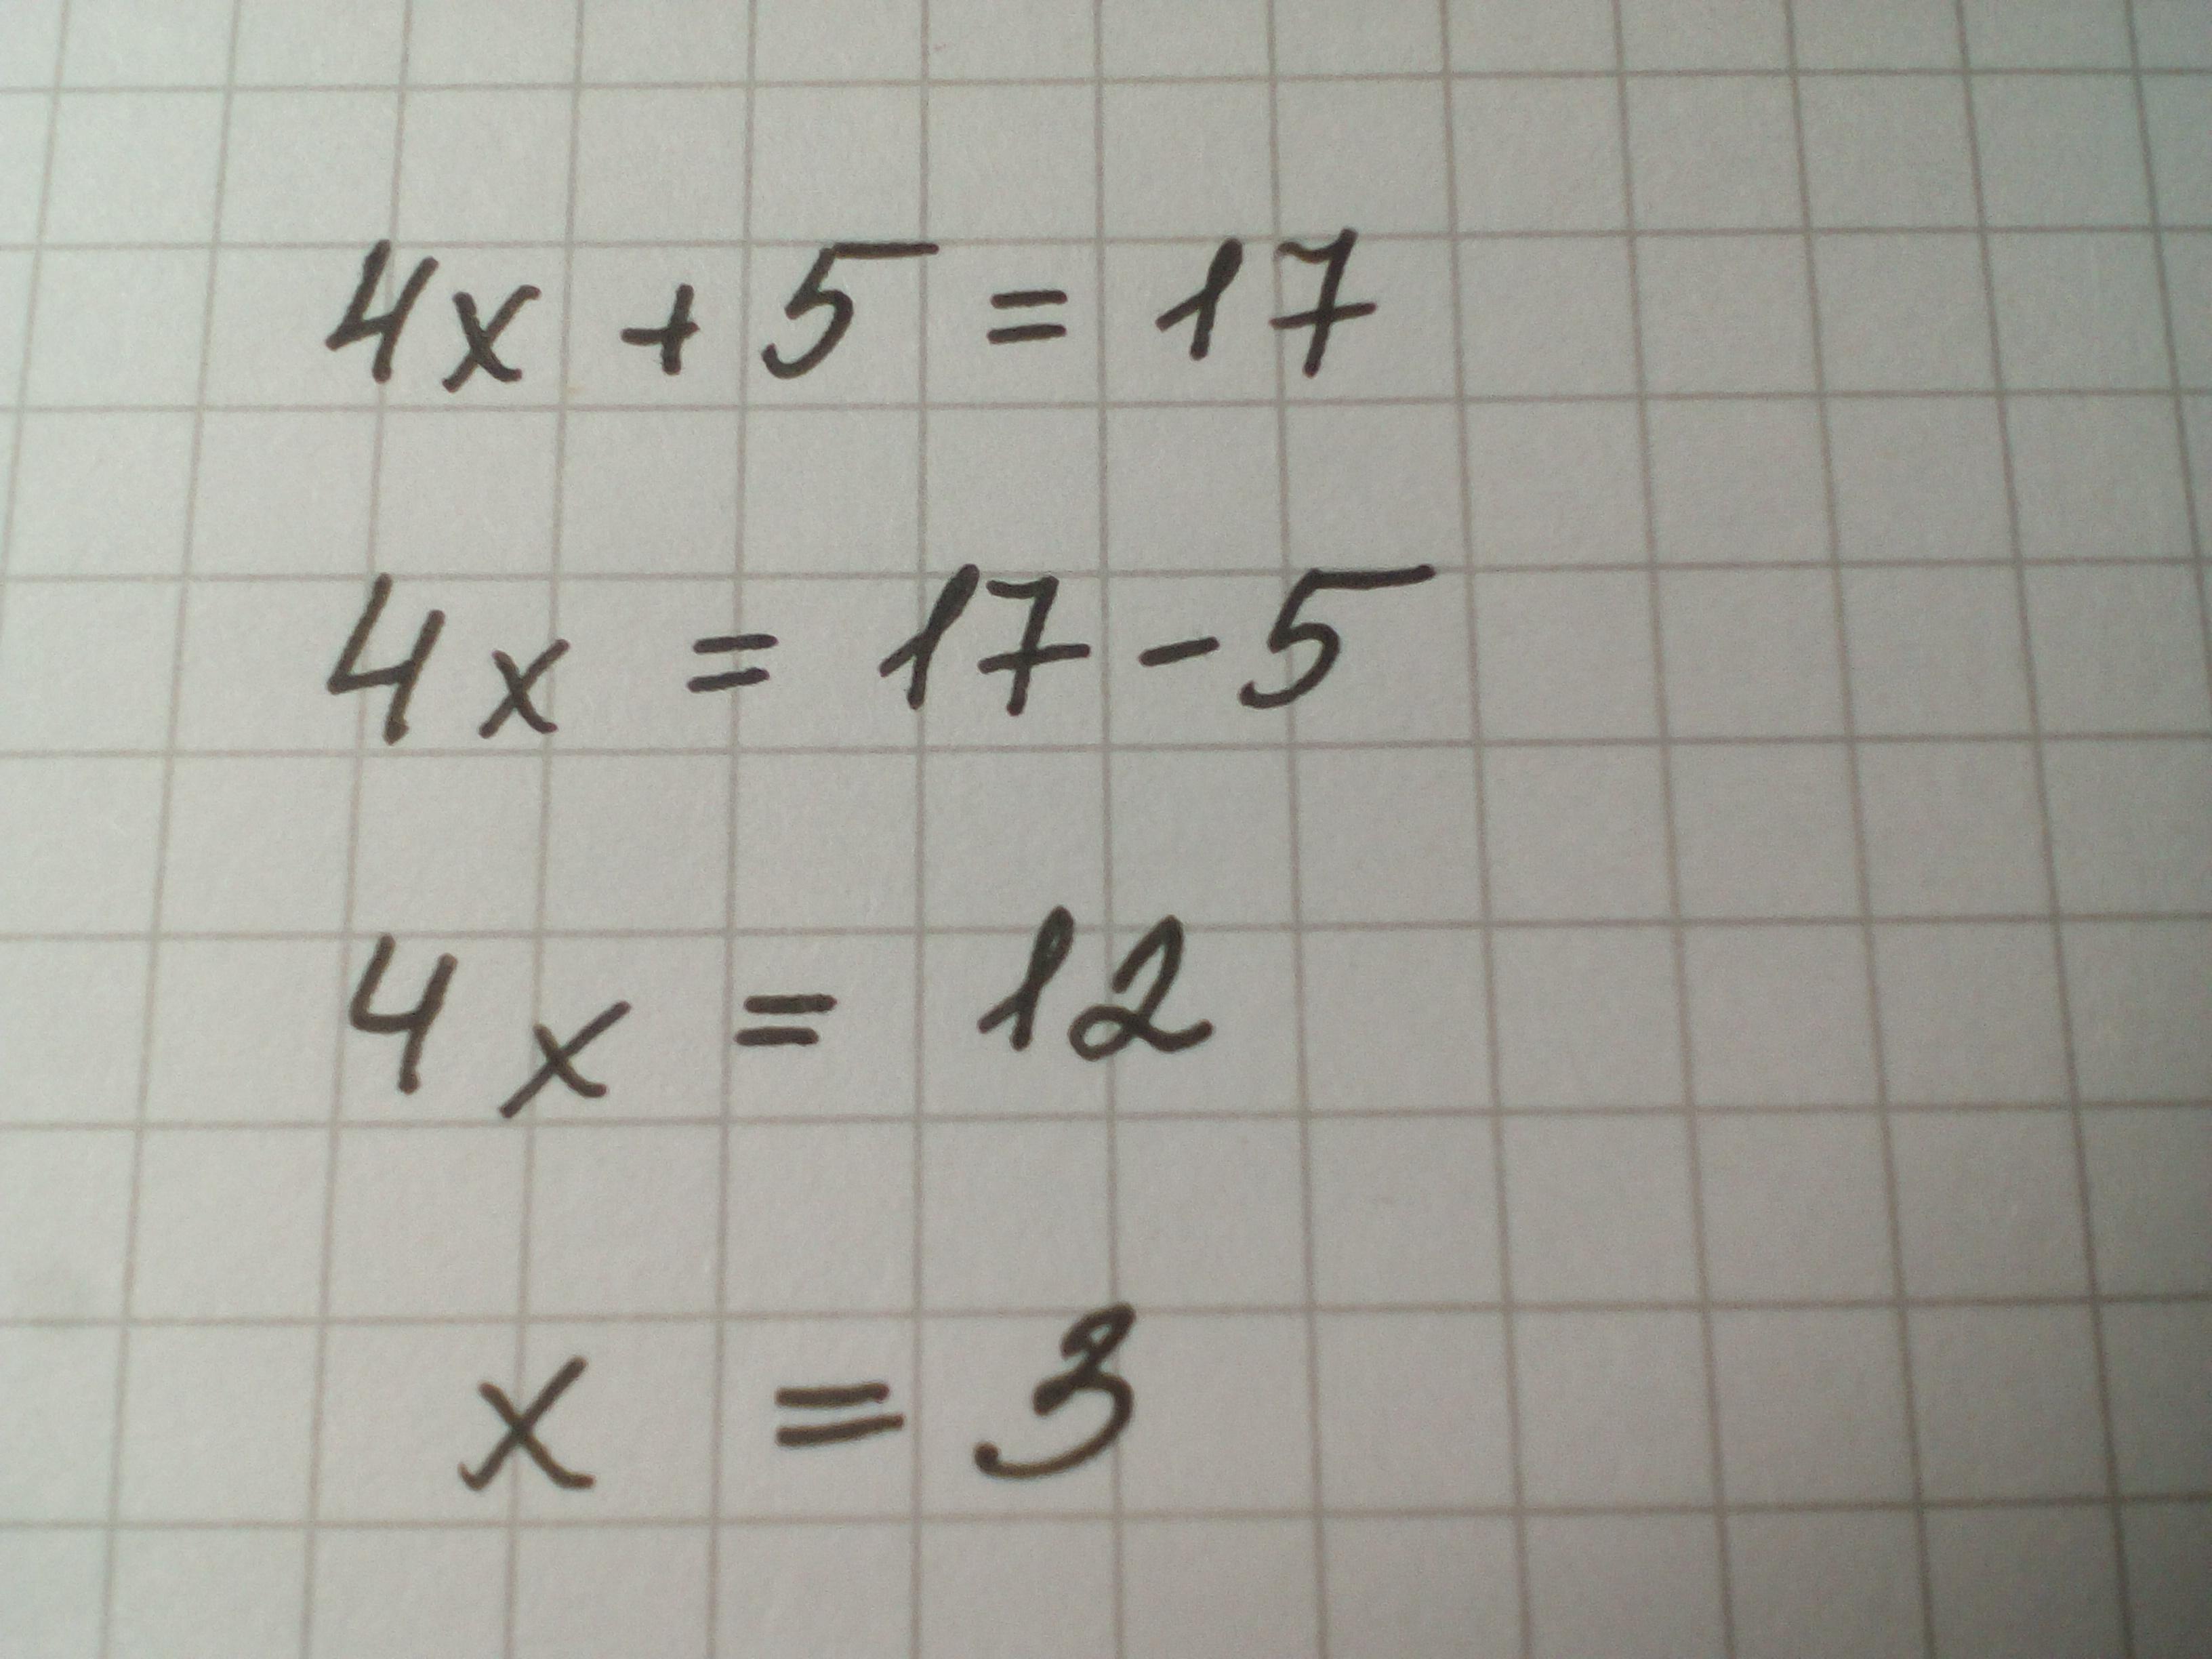 4x + 5 = 17
4x = 17 - 5
4x = 12
x = 3